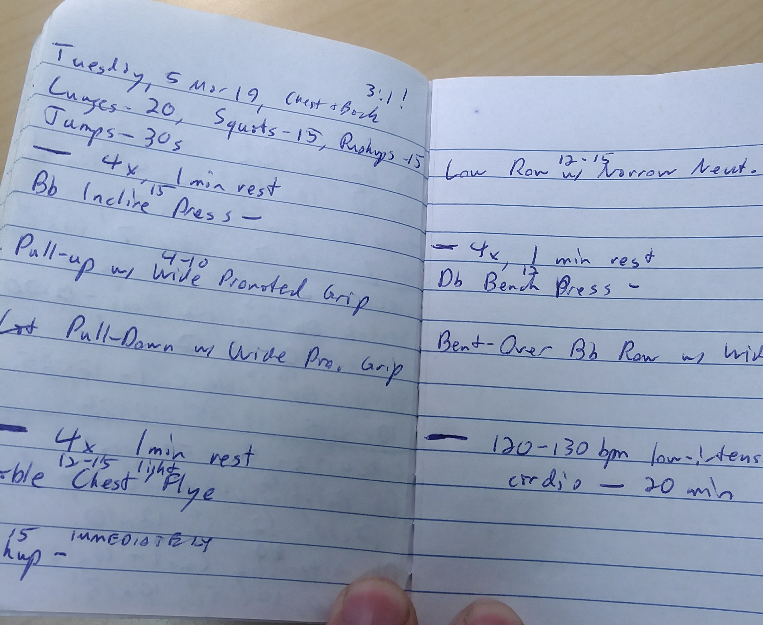 Tuesday, 5 Mar 19, Chest + Back 3:1!
Lunges - 20, Squats - 15, Pushups - 15
Jumps - 30s
— 4x, 1 min rest
15
Bb Incline Press -
4-10
Pull-up w/ Wide Pronated Grip
Lat Pull-Down w/ Wide Pro. Grip
— 4x 1 min rest
12-15 light
ble Chest Flye
15 IMMEDIATELY
hup -
12-15
Low Row w/ Narrow Neut.
— 4x, 1 min rest
12
Db Bench Press -
Bent-Over Bb Row w/ Wid
— 120-130 bpm low-intens
cardio — 20 min